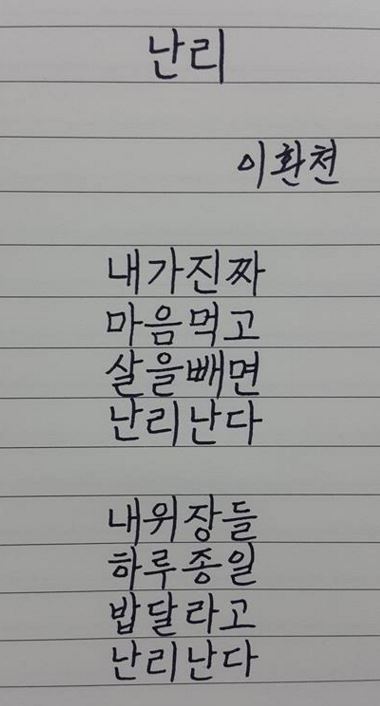 난리
이환천
내가진짜
마음먹고
살을빼면
난리난다
내위장들
하루종일
밥달라고
난리난다